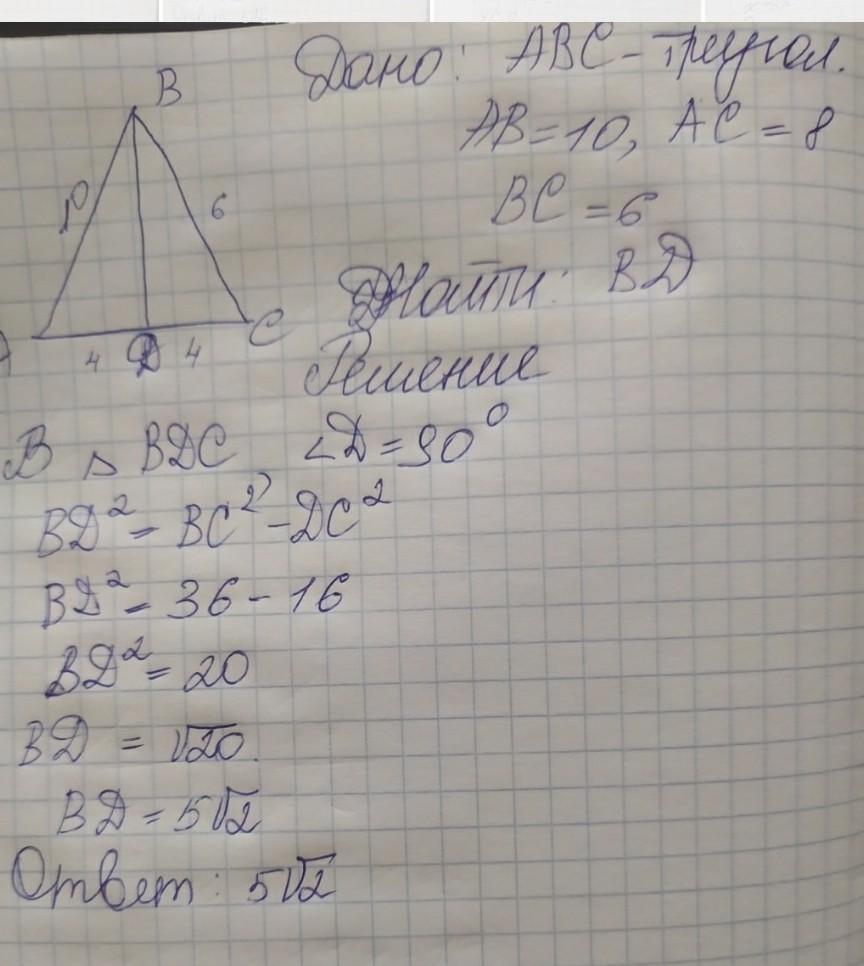 B
Дано: ABC - треугол.
AB=10, AC=8
6
BC=6
Найти: BD
C
4 D 4
Решение
В △ BDC ∠D=90°
BD²=BC²-DC²
BD²=36-16
BD²=20
BD=√20.
BD=5√2
Ответ: 5√2